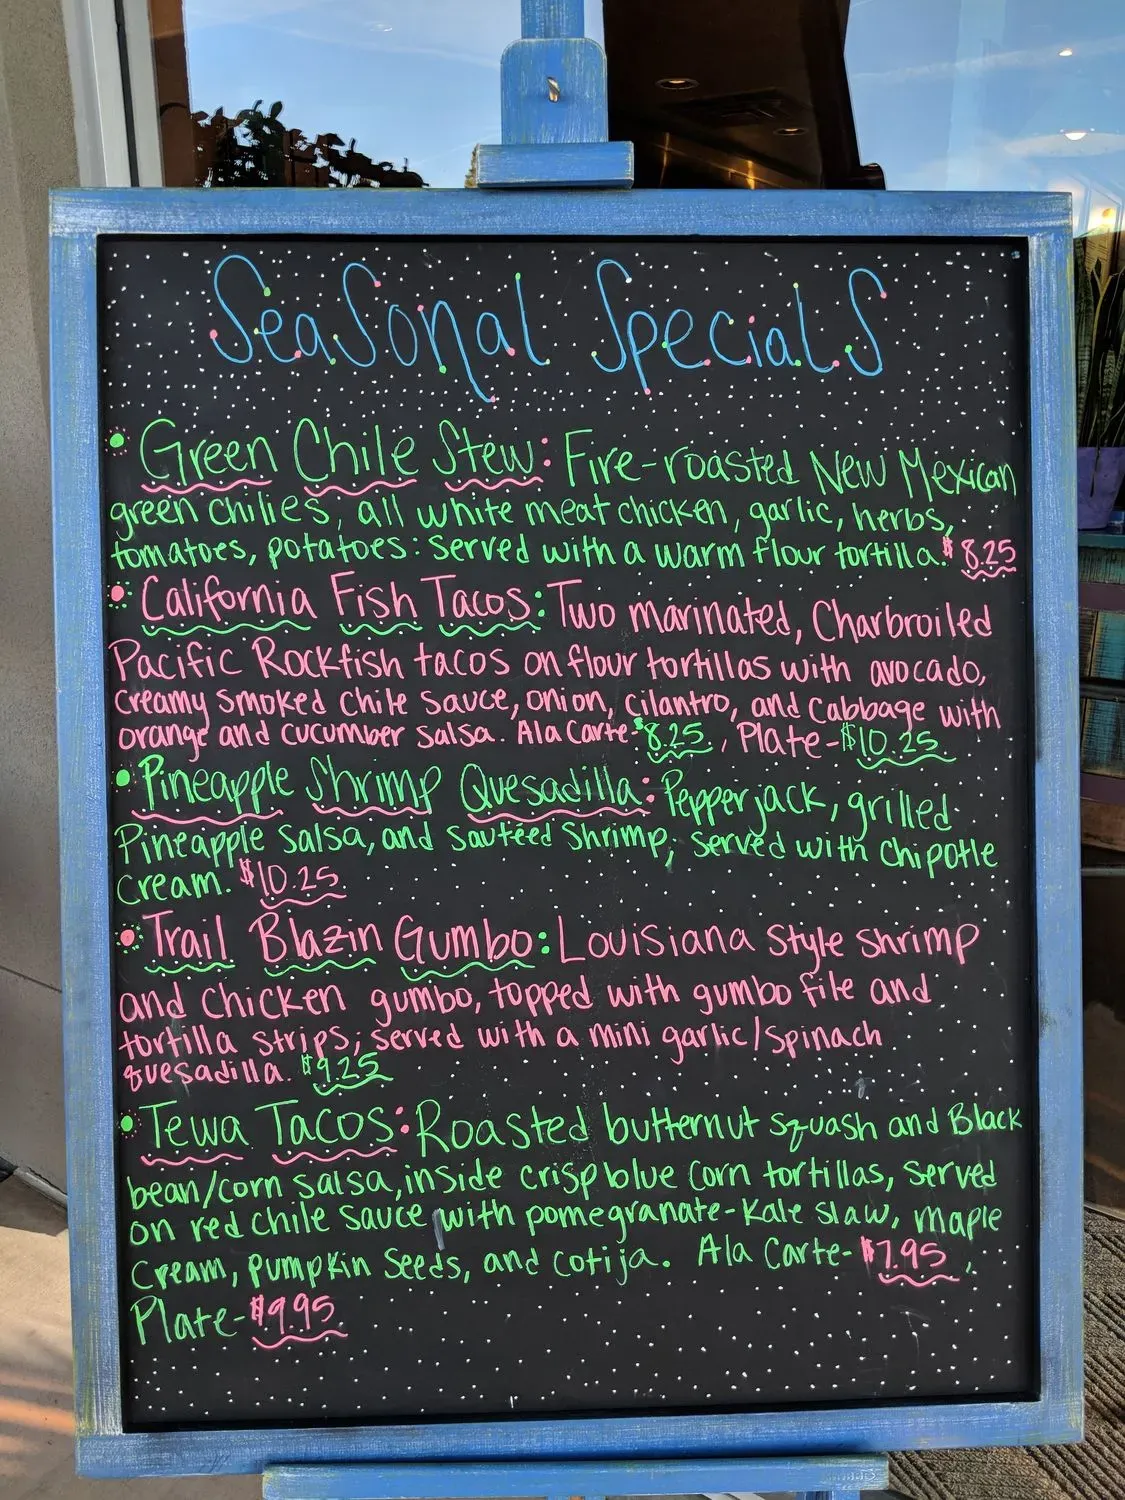 Seasonal Specials
• Green Chile Stew: Fire-roasted New Mexican
green chilies, all white meat chicken, garlic, herbs,
tomatoes, potatoes: served with a warm flour tortilla. $8.25
• California Fish Tacos: Two marinated, Charbroiled
Pacific Rockfish tacos on flour tortillas with avocado,
creamy smoked chile sauce, onion, cilantro, and cabbage with
orange and cucumber salsa. Ala Carte-$8.25, Plate-$10.25
• Pineapple Shrimp Quesadilla: Pepperjack, grilled
Pineapple salsa, and sautéed shrimp; served with chipotle
cream. $10.25
• Trail Blazin Gumbo: Louisiana style shrimp
and chicken gumbo, topped with gumbo file and
tortilla strips; served with a mini garlic/spinach
quesadilla. $9.25
• Tewa Tacos: Roasted butternut squash and Black
bean/corn salsa, inside crisp blue corn tortillas, served
on red chile sauce with pomegranate-kale slaw, maple
cream, pumpkin seeds, and cotija. Ala Carte-$7.95,
Plate-$9.95